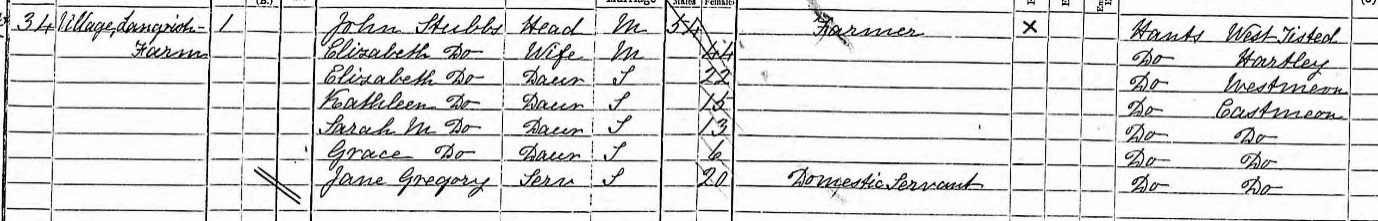 34 Village, Langrish- 1 John Stubbs Head M 54 Farmer X Hants West Tisted
Farm Elizabeth Do Wife M 44 Do Hartley
Elizabeth Do Daur S 22 Do Westmeon
Kathleen Do Daur S 15 Do Eastmeon
Sarah M Do Daur S 13 Do Do
Grace Do Daur S 6 Do Do
Jane Gregory Serv S 20 Domestic Servant Do Do